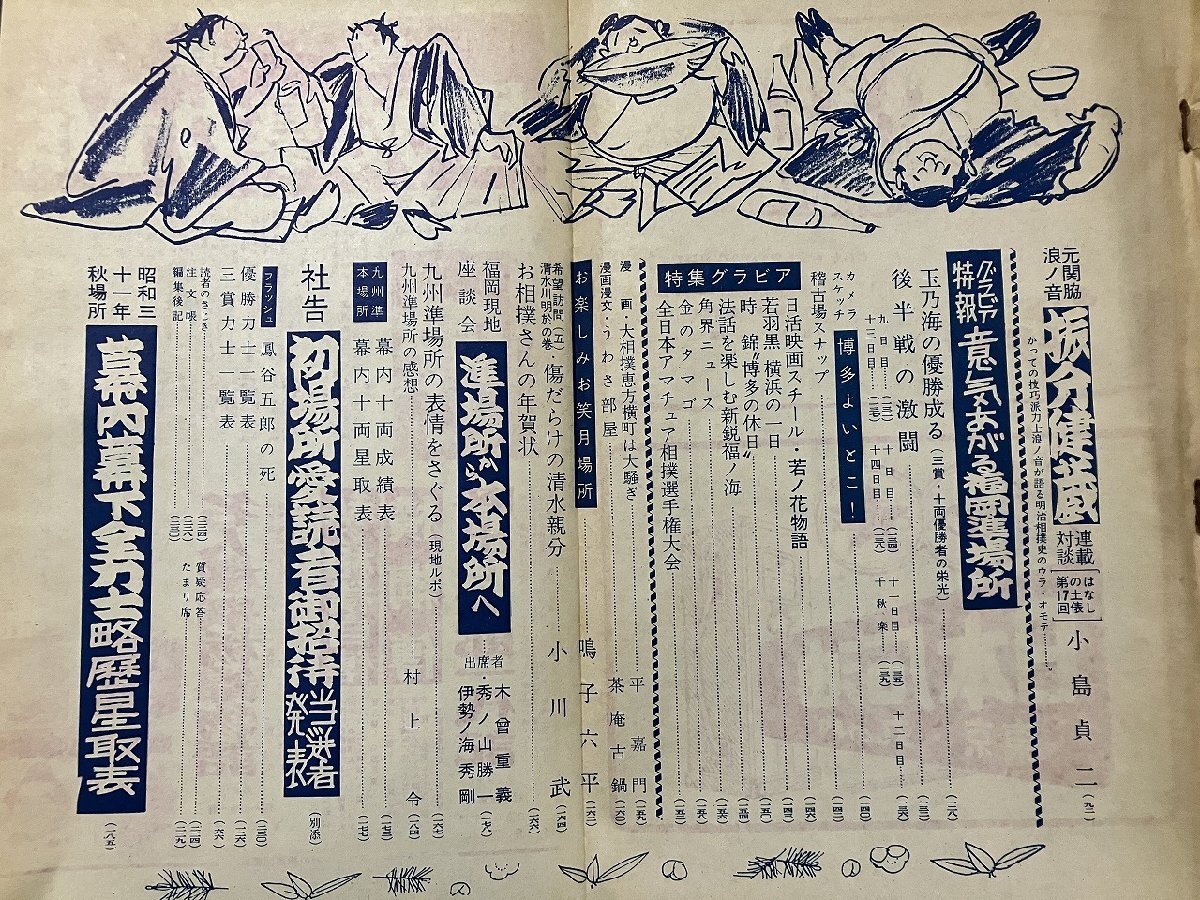 元関脇
浪ノ音
振分健蔵
連載
対談
はなし
の土俵
第17回
小島貞二
かつての技巧派力士浪ノ音が語る明治相撲史のウラ・オモテ
グラビア
特報
意気あがる福岡準場所
玉乃海の優勝成る(三賞・十両優勝者の栄光)
後半戦の激闘
九日目
十日目
十一日目
十二日目
十三日目
十四日目
千秋楽
カメラ
スケッチ
博多よいとこ!
稽古場スナップ
特集グラビア
日活映画スチール・若ノ花物語
若羽黒横浜の一日
時錦“博多の休日”
法話を楽しむ新鋭福ノ海
角界ニュース
金のタマゴ
全日本アマチュア相撲選手権大会
漫画・大相撲恵方横町は大騒ぎ
平嘉門
漫画漫文・うわさ部屋
茶庵古鍋
お楽しみお笑月場所
鳴子六平
希望訪問(五)
清水川明於の巻
傷だらけの清水親分
小川武
お相撲さんの年賀状
福岡現地
座談会
準場所から本場所へ
出席者
木曾重義
秀ノ山勝一
伊勢ノ海秀剛
九州準場所の表情をさぐる(現地ルポ)
九州準場所の感想
村上今
九州準
本場所
幕内十両成績表
幕内十両星取表
社告
初場所愛読者御招待
当選者
発表
(別添)
フラッシュ
鳳谷五郎の死
優勝力士一覧表
三賞力士一覧表
読者のさじき
質疑応答
注文帳
たまり席
編集後記
昭和三
十一年
秋場所
幕内幕下全力士略歴星取表